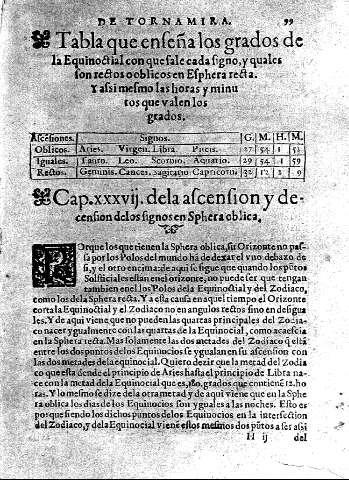 DE TORNAMIRA. 99
Tabla que enseña los grados de
la Equinoctial con que sale cada signo, y quales
son rectos o oblicos en Esphera recta.
Y assi mesmo las horas y minu
tos que valen los
grados.
Ascẽsiones. Signos. G. M. H. M.
Oblicos. Aries. Virgen. Libra. Piscis. 27 54 1 52
Iguales. Tauro. Leo. Scorpio. Aquario. 29 54 1 59
Rectos. Geminis. Cancer. Sagitario Capricorni. 32 12 2 9
Cap. xxxvij. de la ascension y de-
cension de los signos en Sphera oblica,
POrque los que tienen la Sphera oblica, su Orizonte no pas-
sa por los Polos del mundo ha de dexar el vno debaxo de
si, y el otro encima: de aqui se sigue que quando los pũtos
Solsticiales estan en el orizonte, no puede ser que tengan
tambien en el los Polos de la Equinoctial y del Zodiaco,
como los de la Sphera recta. Y a esta causa en aquel tiempo el Orizonte
corta la Equinoctial y el Zodiaco no en angulos rectos sino en desigua
les. Y de aqui viene que no pueden las quartas principales del Zodia-
co nacer ygualmente con las quartas de la Equinocial, como acaescia
en la Sphera recta. Mas solamente las dos metades del Zodiaco q̃ estã
entre los dos puntos de los Equinocios se ygualan en su ascension con
las dos metades de la equinocial. Quiero dezir que la metad del Zodia
co que esta dende el principio de Aries hasta el principio de Libra na-
ce con la metad de la Equinocial que es, 180. grados que contiene 12. ho
ras. Y lo mesmo se dize de la otra metad y de aqui viene que en la Sphe
ra oblica los dias de los Equinocios son yguales a las noches. Esto es
por que siendo los dichos puntos de los Equinocios en la intersection
del Zodiaco, y de la Equinocial vienẽ estos mesmos dos pũtos a ser assi
H ij del